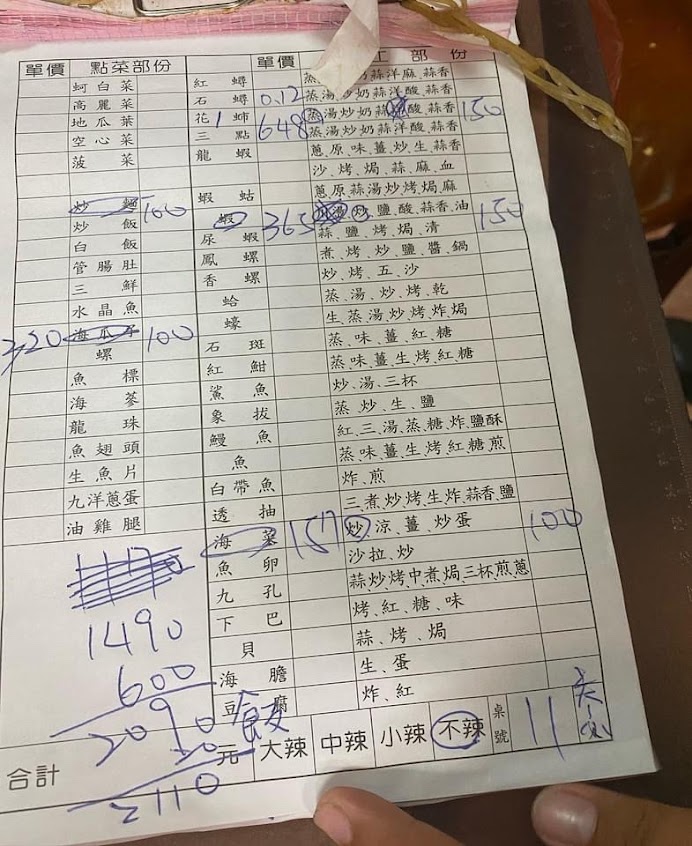 單價 點菜部份 單價 工部份
蚵白菜 紅蟳 蒸、湯、炒、奶、蒜、洋、麻、蒜香
高麗菜 石蟳 0.12 蒸、湯、炒、奶、蒜、洋、酸、蒜香
地瓜葉 花 1 蒸、湯、炒、奶、蒜 酸、蒜香 150
空心菜 三點 648 蒸、湯、炒、奶、蒜、洋、酸、蒜香
菠菜 龍蝦 蔥、原、味、薑、炒、生、蒜香
沙、烤、焗、蒜、麻、血
蝦蛄 蔥、原、蒜、湯、炒、烤、焗、麻
炒麵 100 蝦 365 鹽、酸、蒜香、油 150
炒飯 尿蝦 蒜、鹽、烤、焗、清
白飯 鳳螺 煮、烤、炒、鹽、醬、鍋
管腸肚 香螺 炒、烤、五、沙
三鮮 蛤 蒸、湯、炒、烤、乾
水晶魚 蠔 生、蒸、湯、炒、烤、炸、焗
320 海瓜子 100 石斑 蒸、味、薑、紅、糖
螺 紅魽 蒸、味、薑、生、烤、紅、糖
魚標 鯊魚 炒、湯、三杯
海蔘 象拔 蒸、炒、生、鹽
龍珠 鰻魚 紅、三、湯、蒸、糖、炸、鹽酥
魚翅頭 魚 蒸、味、薑、生、烤、紅、糖、煎
生魚片 白帶魚 炸、煎
九洋蔥蛋 透抽 三、煮、炒、烤、生、炸、蒜香、鹽
油雞腿 海菜 157 炒、涼、薑、炒蛋 100
魚卵 沙拉、炒
九孔 蒜、炒、烤、中、煮、焗、三杯、煎、蔥
下巴 烤、紅、糖、味
1490 貝 蒜、烤、焗
600 海膽 生、蛋
2090 豆腐 炸、紅
20 飯
合計 2110 元 大辣 中辣 小辣 不辣 桌號 11